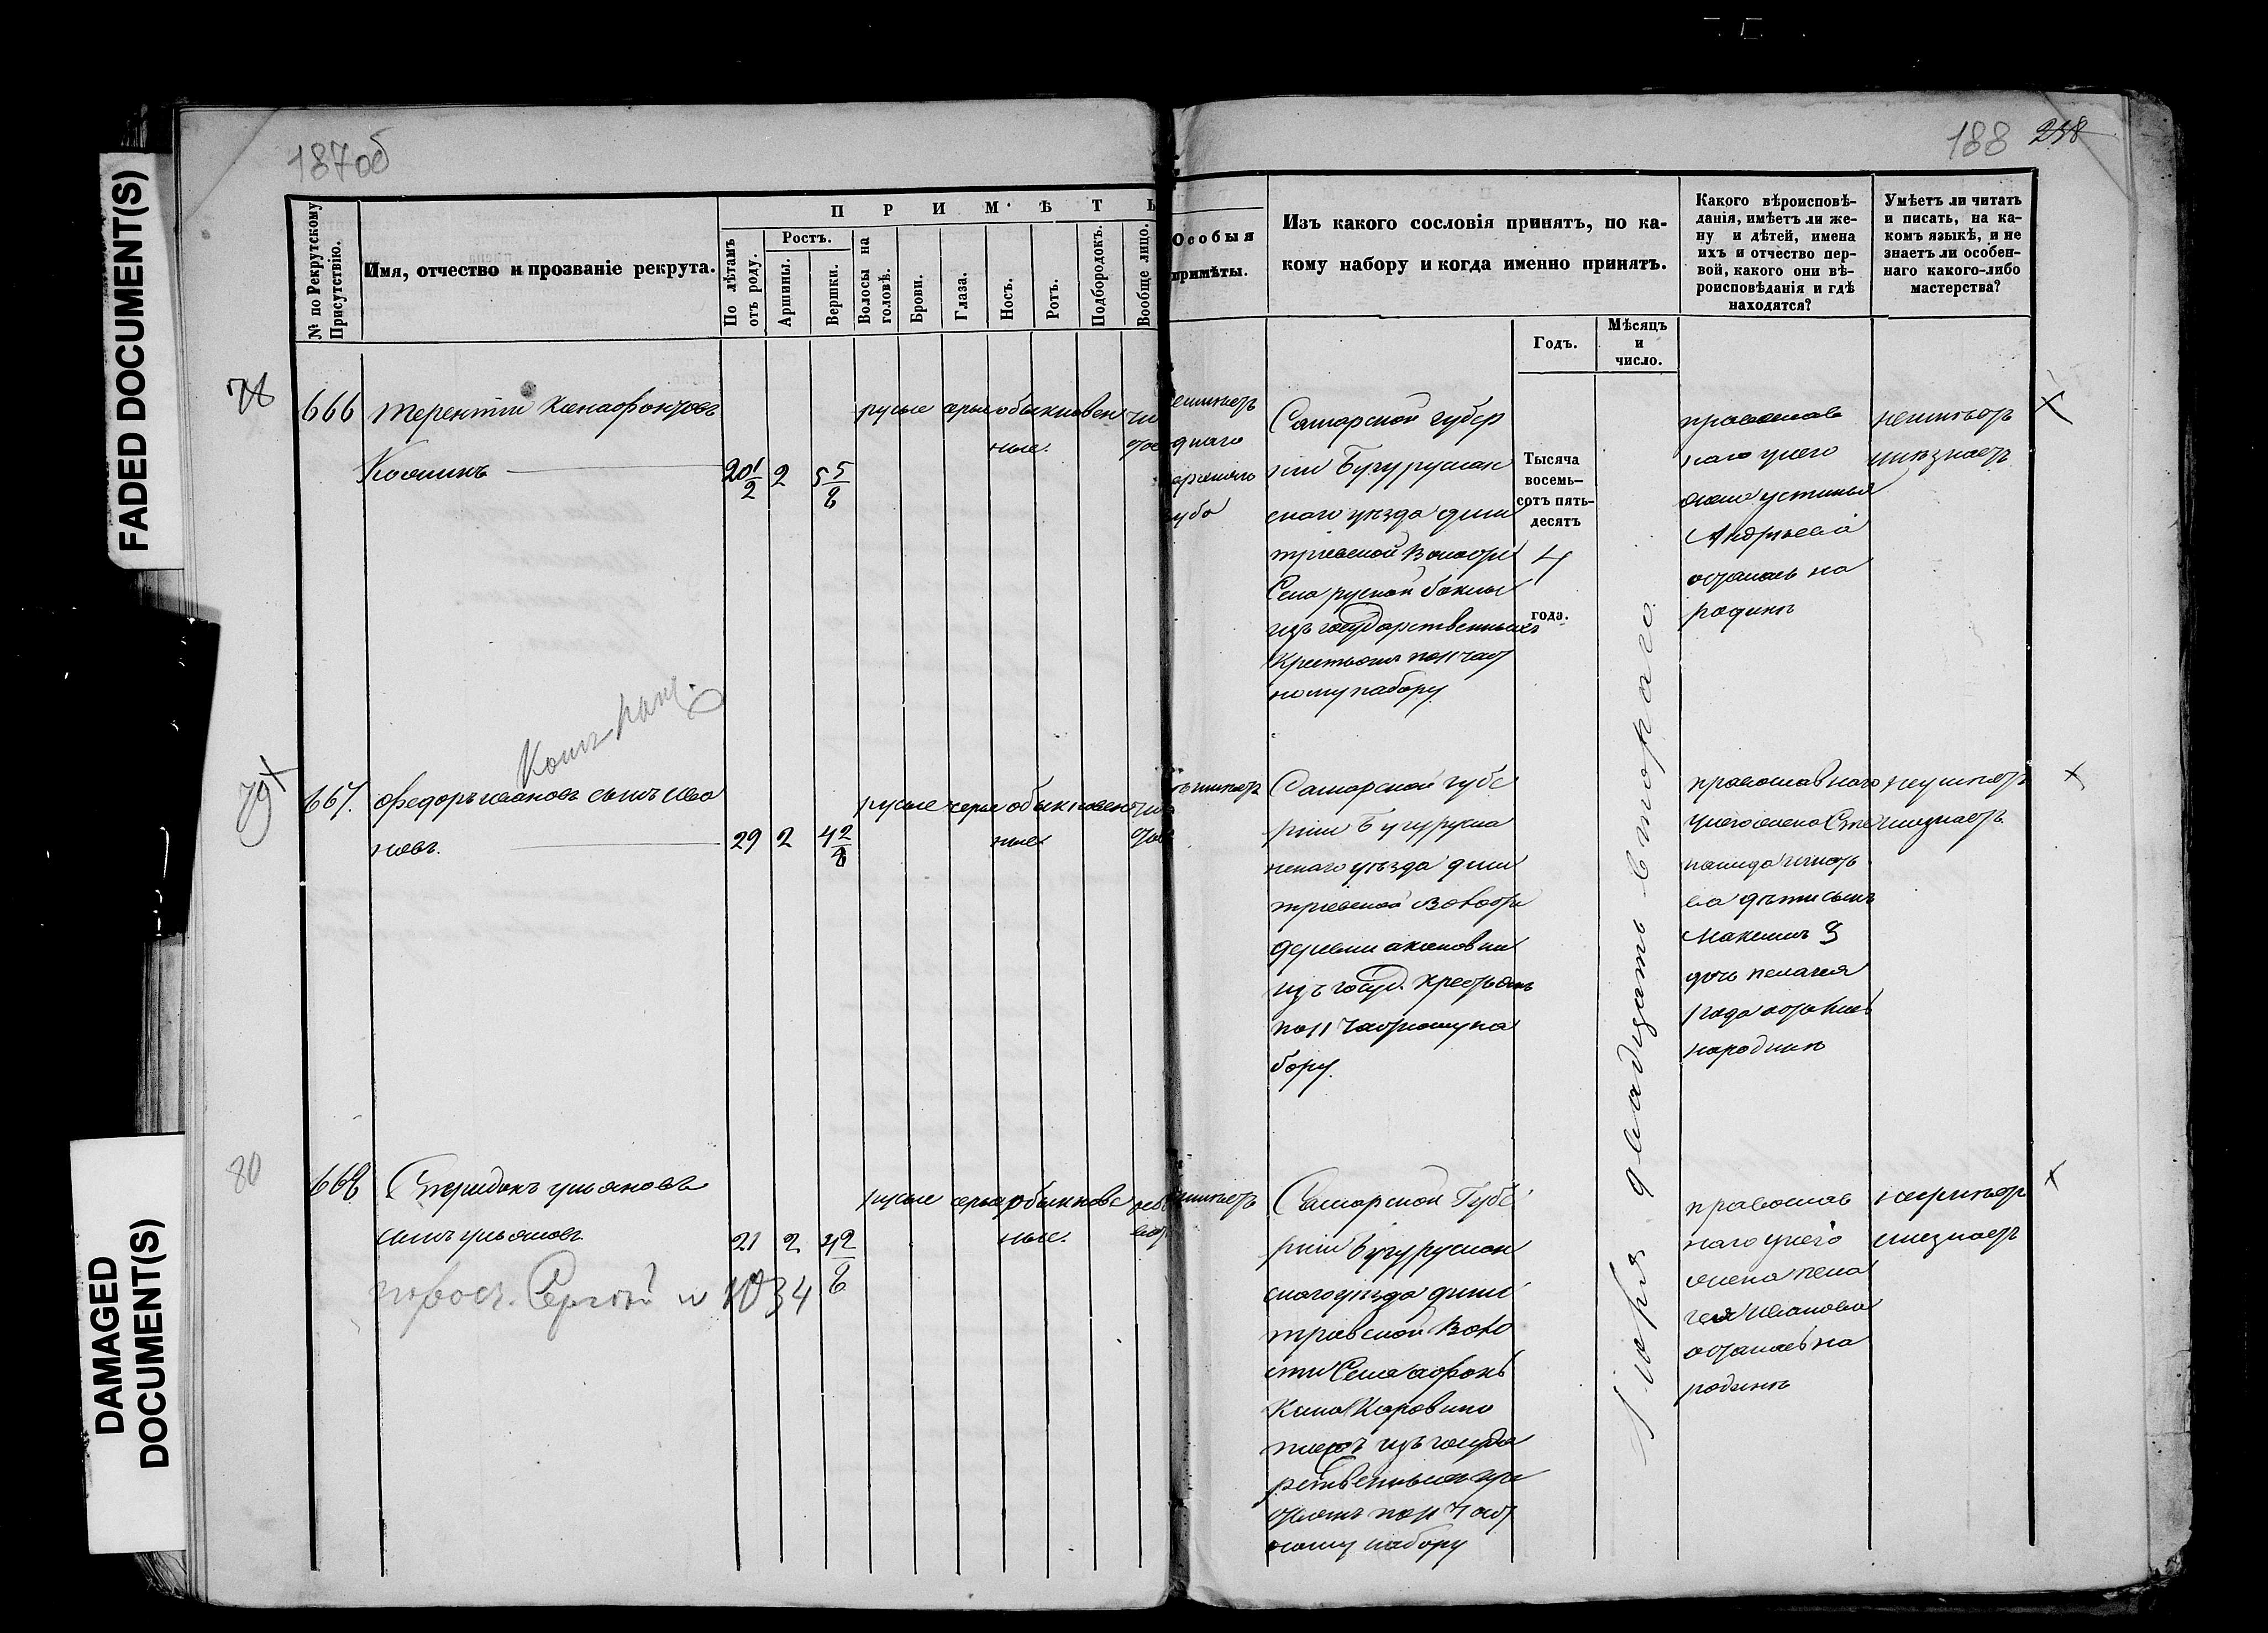 FADED DOCUMENT(S)
DAMAGED DOCUMENT(S)
187об
188 258
П Р И М Ѣ Т Ы
№ по Рекрутскому Присутствію.
Имя, отчество и прозваніе рекрута.
По лѣтамъ отъ роду.
Ростъ.
Аршины.
Вершки.
Волосы на головѣ.
Брови.
Глаза.
Носъ.
Ротъ.
Подбородокъ.
Вообще лицо.
Особыя
примѣты.
Изъ какого сословія принятъ, по ка-
кому набору и когда именно принятъ.
Годъ.
Мѣсяцъ
и
число.
Какого вѣроисповѣ-
данія, имѣетъ ли же-
ну и дѣтей, имена
ихъ и отчество пер-
вой, какого они вѣ-
роисповѣданія и гдѣ
находятся?
Умѣетъ ли читать
и писать, на ка-
комъ языкѣ, и не
знаетъ ли особен-
наго какого-либо
мастерства?
78
666 терентии
20 1/2 2 5 5/8
русые серые обыкновен
ные.
чис
тое
еимѣетъ
днаго
зуба
Самарской губер
нии Бугуруслан
скаго уѣзда дми
тріевской Волости
Села руской бокмы
изъ государственныхъ
Крестьянъ по 11 част
ному набору
Тысяча
восемь-
сотъ пять-
десятъ
4
года.
Марта двадцать втораго.
православ
наго унего
жена устинья
Андрѣева
осталась на
родинѣ
неимѣетъ
ниезнаетъ
79
Конч-
667. Федоръ ивановъ сынъ Ива
новъ.
29 2 4 2/8
русые серые обыкновен
ные
чис
тое
имѣетъ
Самарской губе
рнии Бугурусла
нскаго уѣзда дми
тріевской Волости
деревни
изъ госуд. крестьянъ
по 11 частному на
бору.
православнаго
унего жена Сте
панида
ва дѣти сынъ
Максимъ 3
дочь пелагея
1 года остались
народинѣ
неумѣетъ
ниезнаетъ
80
668 Спиридонъ ульяновъ
сынъ ульяновъ
21 2 4 2/8
Сергей и 1034
русые серые обыкнове
ные.
имѣетъ
Самарской Губе
рнии Бугуруслан
скаго уѣзда дми
тріевской Воло
сти Села
Коровино
тожъ изъ госуда
рственныхъ кре
стьянъ по 11 част
ному набору
православ
наго унего
жена пела
гея Иванова
осталась на
родинѣ
ниезнаетъ